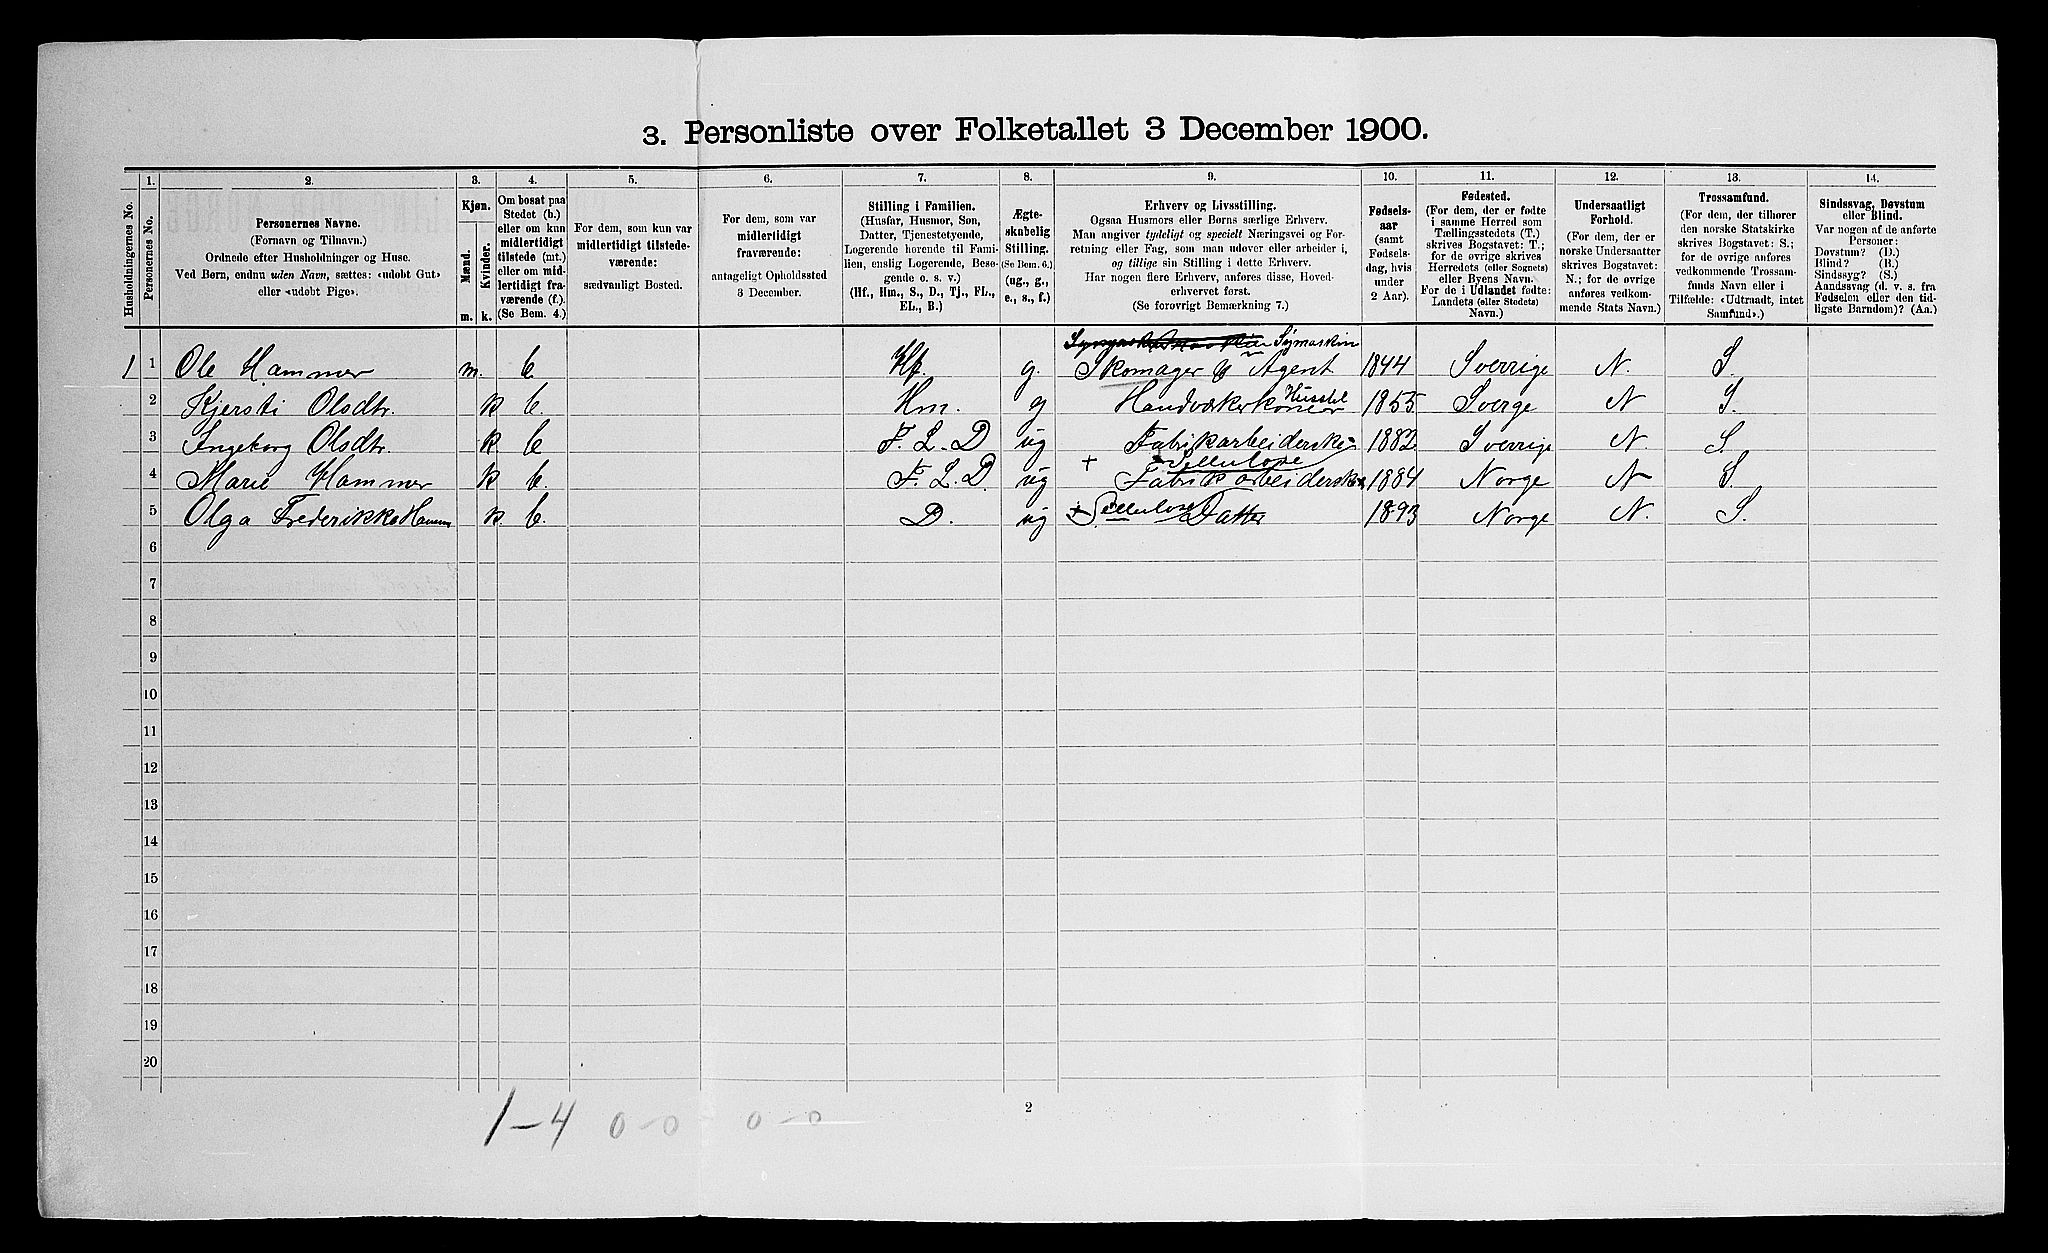 3. Personliste over Folketallet 3 December 1900.
Husholdningernes No.
1.
Personernes No.
2.
Personernes Navne.
(Fornavn og Tilnavn.)
Ordnede efter Husholdninger og Huse.
Ved Børn, endnu uden Navn, sættes: «udøbt Gut»
eller «udøbt Pige».
3.
Kjøn.
Mænd.
Kvinder.
m. k.
4.
Om bosat paa
Stedet (b.)
eller om kun
midlertidigt
tilstede (mt.)
eller om mid-
lertidigt fra-
værende (f.).
(Se Bem. 4.)
5.
For dem, som kun var
midlertidigt tilstede-
værende:
sædvanligt Bosted.
6.
For dem, som var
midlertidigt
fraværende:
antageligt Opholdssted
3 December.
7.
Stilling i Familien.
(Husfar, Husmor, Søn,
Datter, Tjenestetyende,
Logerende hørende til Fami-
lien, enslig Logerende, Besø-
gende o. s. v.)
(Hf., Hm., S., D., Tj., FL.,
EL., B.)
8.
Ægte-
skabelig
Stilling.
(Se Bem. 6.)
(ug., g.,
e., s., f.)
9.
Erhverv og Livsstilling.
Ogsaa Husmors eller Børns særlige Erhverv.
Man angiver tydeligt og specielt Næringsvei og For-
retning eller Fag, som man udøver eller arbeider i,
og tillige sin Stilling i dette Erhverv.
Har nogen flere Erhverv, anføres disse, Hoved-
erhvervet først.
(Se forøvrigt Bemærkning 7.)
10.
Fødsels-
aar
(samt
Fødsels-
dag, hvis
under
2 Aar).
11.
Fødested.
(For dem, der er fødte
i samme Herred som
Tællingsstedets (T.)
skrives Bogstavet: T.;
for de øvrige skrives
Herredets (eller Sognets)
eller Byens Navn.
For de i Udlandet fødte:
Landets (eller Stedets)
Navn.)
12.
Undersaatligt
Forhold.
(For dem, der er
norske Undersaatter
skrives Bogstavet:
N.; for de øvrige
anføres vedkom-
mende Stats Navn.)
13.
Trossamfund.
(For dem, der tilhører
den norske Statskirke
skrives Bogstavet: S.;
for de øvrige anføres
vedkommende Trossam-
funds Navn eller i
Tilfælde: «Udtraadt, intet
Samfund».)
14.
Sindssvag, Døvstum
eller Blind.
Var nogen af de anførte
Personer:
Døvstum? (D.)
Blind? (B.)
Sindssyg? (S.)
Aandssvag (d. v. s. fra
Fødselen eller den tid-
ligste Barndom)? (Aa.)
Symaskin
1 1 Ole Hammer m. b Hf. g. Skomager & Agent 1844 Sverrige N. S.
2 Kjersti Olsdtr. k b. Hm. g Handværkerkone Husstel 1855 Sverge N S.
3 Ingeborg Olsdtr. k b F. L. D ug Fabrikarbeiderske 1882 Sverrige N. S.
+ Sellulose
4 Marie Hammer k b. F. L. D. ug Fabrik arbeiderske 1884 Norge N S.
5 Olga Frederikke k. b. D. ug + Sellulose Datter 1893 Norge N. S.
6
7
8
9
10
11
12
13
14
15
16
17
18
19
20
2
1-4 0-0 0-0